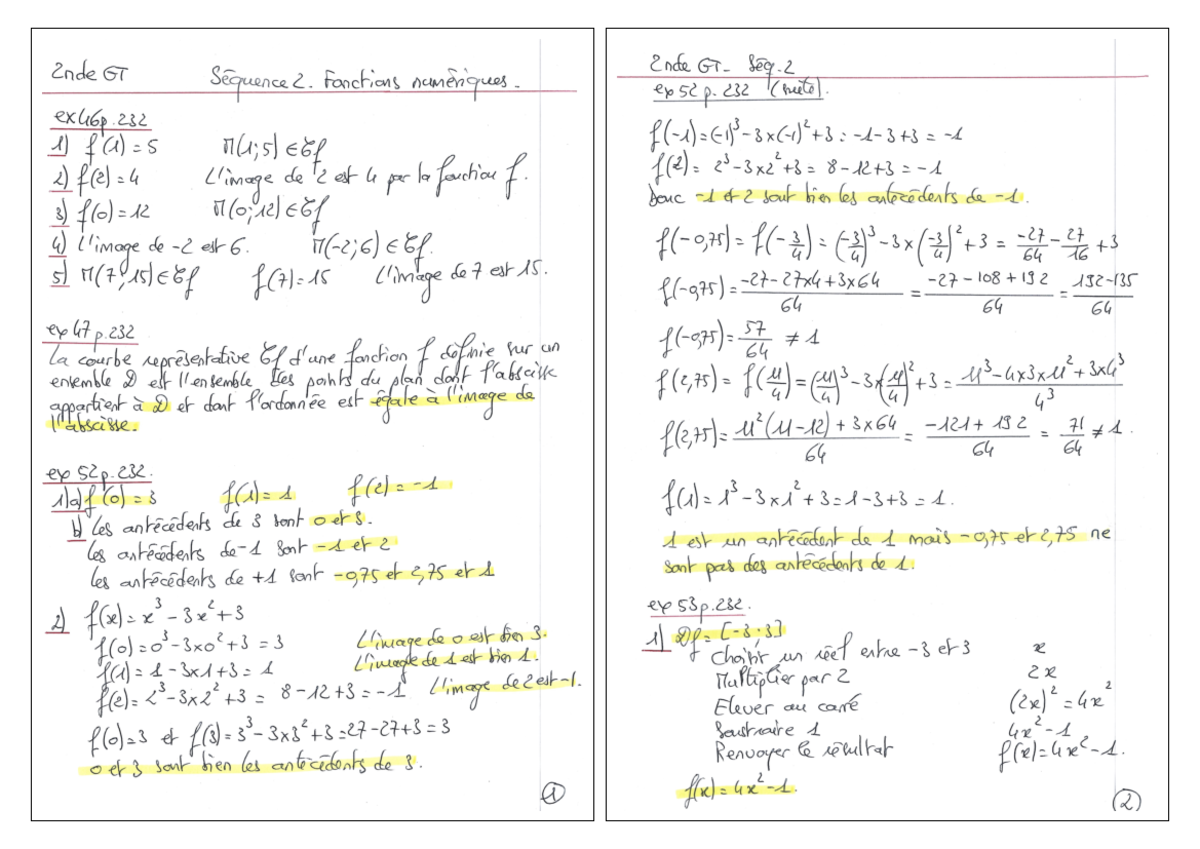 2nde GT Séquence 2. Fonctions numériques.
ex 46 p. 232
1) f(1) = 5 M(1;5) ∈ 𝒞f
2) f(2) = 4 L'image de 2 est 4 par la fonction f.
3) f(0) = 12 M(0;12) ∈ 𝒞f
4) L'image de -2 est 6. M(-2;6) ∈ 𝒞f.
5) M(7;15) ∈ 𝒞f f(7) = 15 L'image de 7 est 15.
ex 47 p. 232
La courbe représentative 𝒞f d'une fonction f définie sur un
ensemble D est l'ensemble des points du plan dont l'abscisse
appartient à D et dont l'ordonnée est égale à l'image de
l'abscisse.
ex 52 p. 232.
1) a) f(0) = 3 f(1) = 1 f(2) = -1
b) Les antécédents de 3 sont 0 et 3.
Les antécédents de -1 sont -1 et 2
Les antécédents de +1 sont -0,75 et 2,75 et 1
2) f(x) = x³ - 3x² + 3
f(0) = 0³ - 3×0² + 3 = 3 L'image de 0 est bien 3.
f(1) = 1 - 3×1 + 3 = 1 L'image de 1 est bien 1.
f(2) = 2³ - 3×2² + 3 = 8 - 12 + 3 = -1 L'image de 2 est -1.
f(0) = 3 et f(3) = 3³ - 3×3² + 3 = 27 - 27 + 3 = 3
0 et 3 sont bien les antécédents de 3.
1
2nde GT - Séq. 2
ex 52 p. 232 (suite).
f(-1) = (-1)³ - 3×(-1)² + 3 = -1 - 3 + 3 = -1
f(2) = 2³ - 3×2² + 3 = 8 - 12 + 3 = -1
Donc -1 et 2 sont bien les antécédents de -1.
f(-0,75) = f(-3/4) = (-3/4)³ - 3×(-3/4)² + 3 = -27/64 - 27/16 + 3
f(-0,75) = (-27 - 27×4 + 3×64)/64 = (-27 - 108 + 192)/64 = (192 - 135)/64
f(-0,75) = 57/64 ≠ 1
f(2,75) = f(11/4) = (11/4)³ - 3×(11/4)² + 3 = (11³ - 4×3×11² + 3×4³)/4³
f(2,75) = (11²(11 - 12) + 3×64)/64 = (-121 + 192)/64 = 71/64 ≠ 1.
f(1) = 1³ - 3×1² + 3 = 1 - 3 + 3 = 1.
1 est un antécédent de 1 mais -0,75 et 2,75 ne
sont pas des antécédents de 1.
ex 53 p. 232.
1) Df = [-3;3]
Choisir un réel entre -3 et 3 x
Multiplier par 2 2x
Elever au carré (2x)² = 4x²
Soustraire 1 4x² - 1
Renvoyer le résultat f(x) = 4x² - 1.
f(x) = 4x² - 1.
2